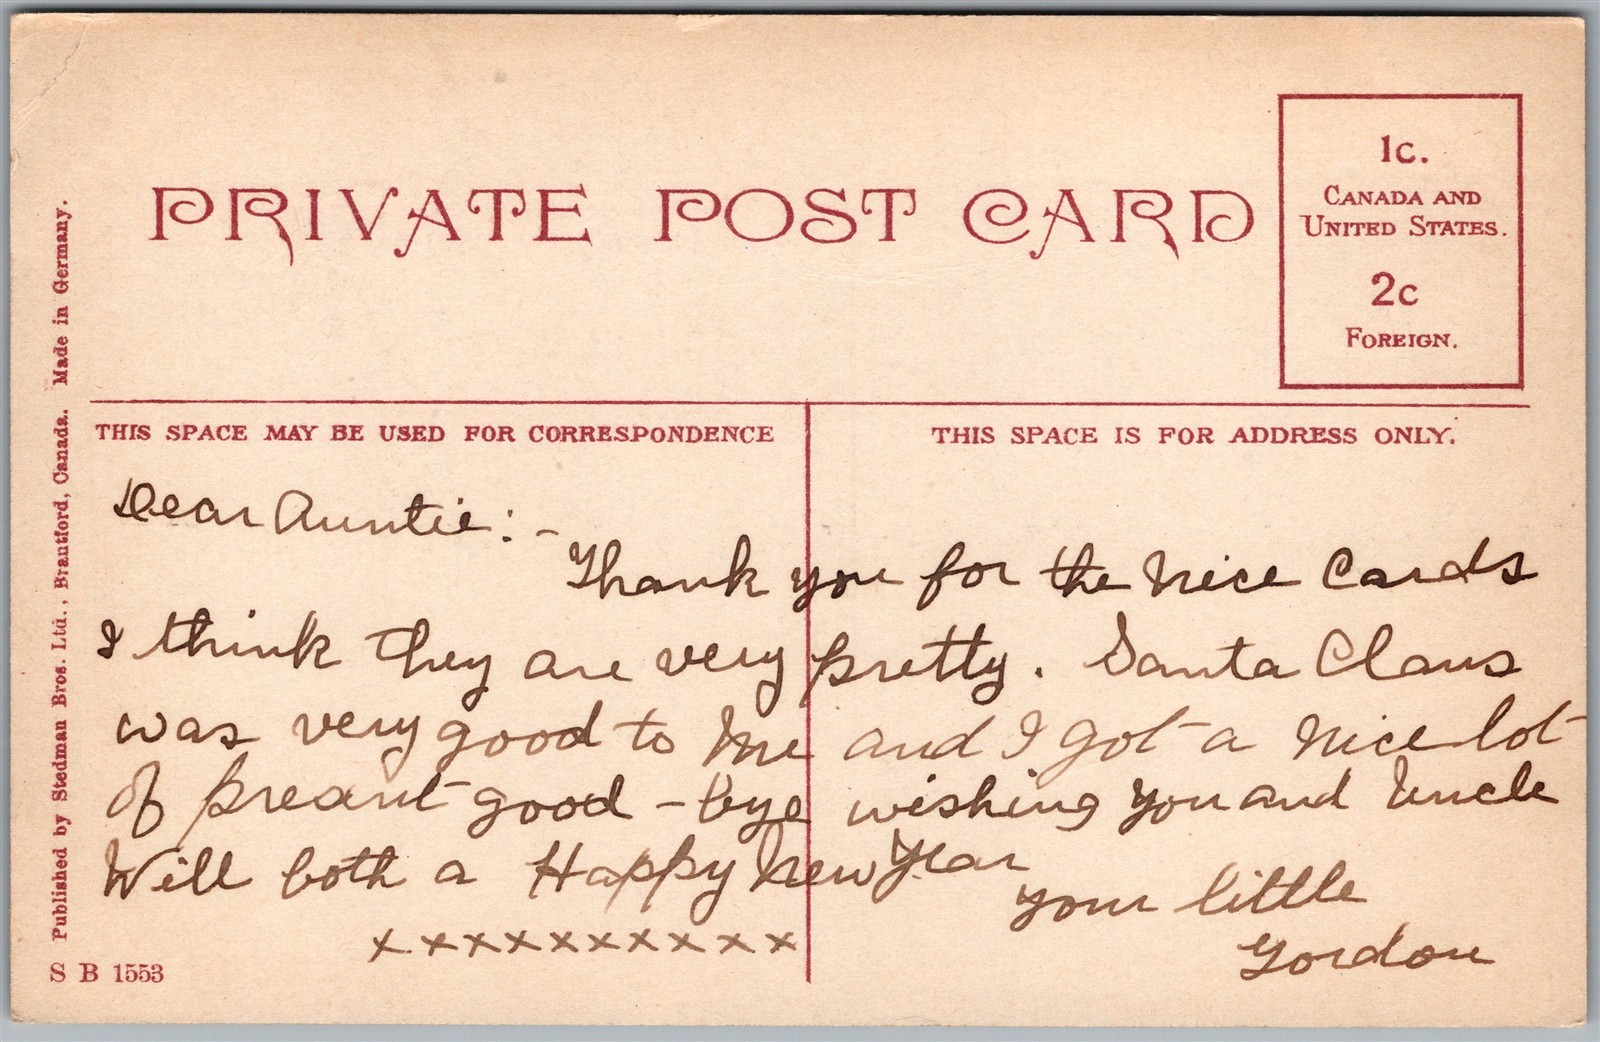 PRIVATE POST CARD
1c.
CANADA AND
UNITED STATES.
2c
FOREIGN.
THIS SPACE MAY BE USED FOR CORRESPONDENCE
THIS SPACE IS FOR ADDRESS ONLY.
Dear Auntie:-
Thank you for the nice Cards
I think they are very pretty. Santa Claus
was very good to me and I got a nice lot
of presant good-bye wishing you and Uncle
Will both a Happy New Year
your little
Gordon
x x x x x x x x x x x
Published by Stedman Bros. Ltd., Brantford, Canada. Made in Germany.
S B 1553